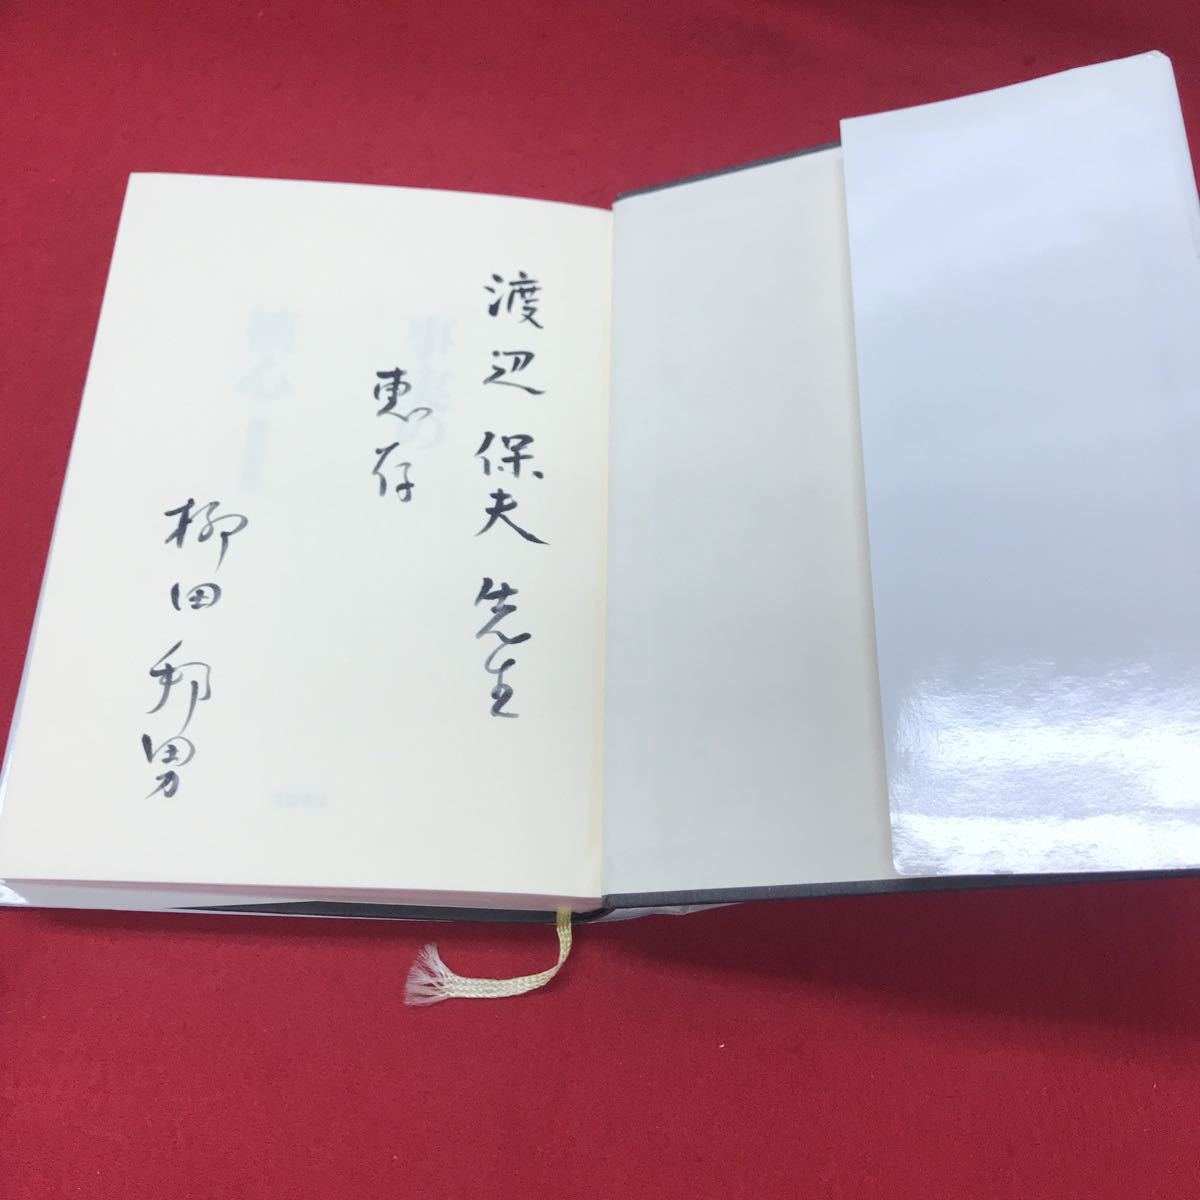 渡辺保夫先生
恵存
柳田邦男